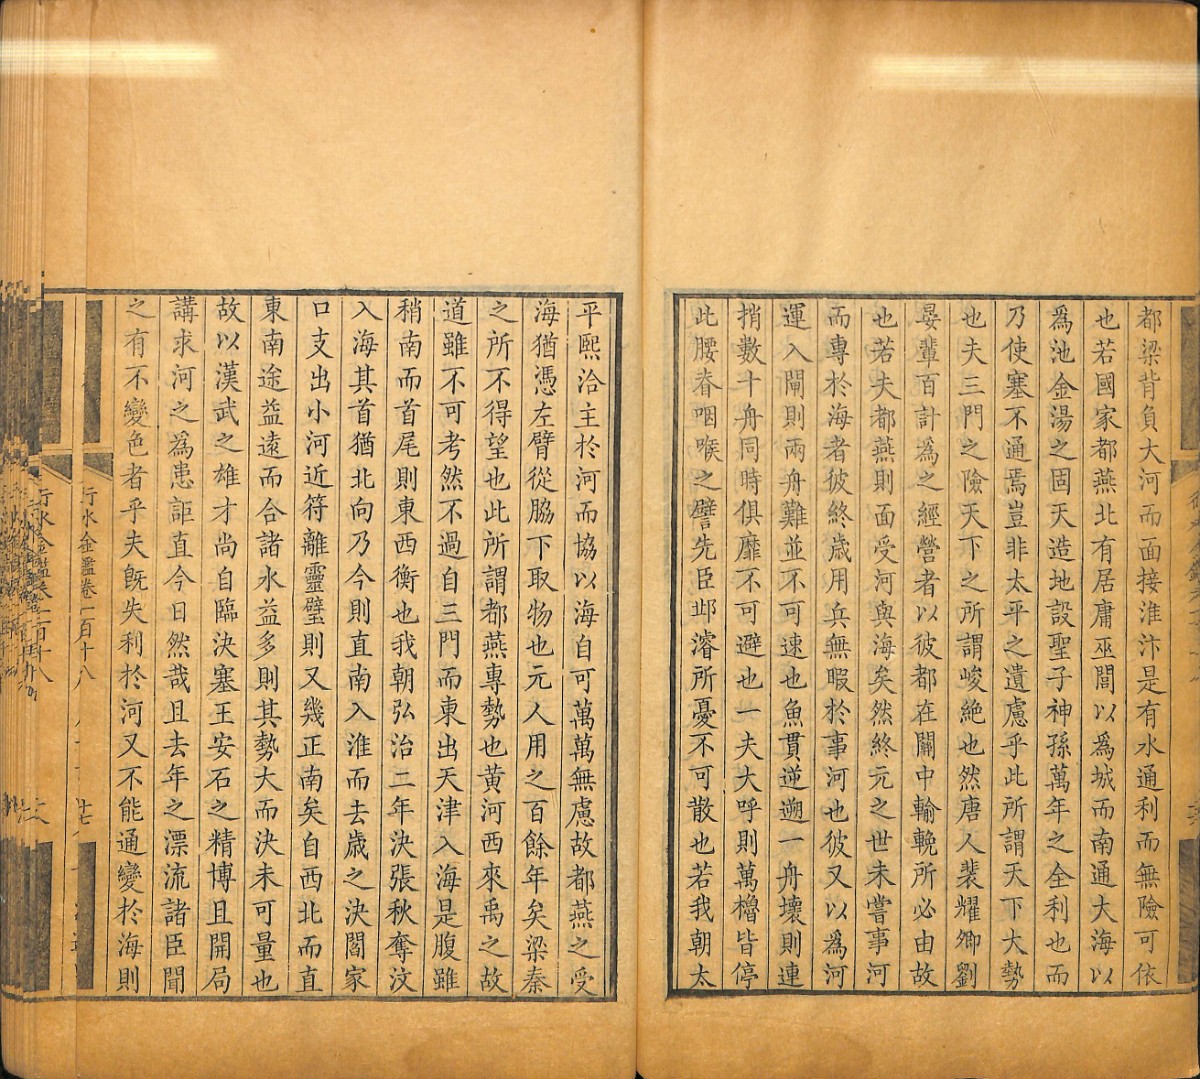 都梁背負大河而面接淮汴是有水通利而無險可依
也若國家都燕北有居庸巫閭以爲城而南通大海以
爲池金湯之固天造地設聖子神孫萬年之全利也而
乃使塞不通焉豈非太平之遺慮乎此所謂天下大勢
也夫三門之險天下之所謂峻絶也然唐人裴耀卿劉
晏輩百計爲之經營者以彼都在關中輸輓所必由故
也若夫都燕則面受河與海矣然終元之世未嘗事河
而專於海者彼終歲用兵無暇於事河也彼又以爲河
運入閘則兩舟難並不可速也魚貫逆遡一舟壞則連
捎數十舟同時俱靡不可避也一夫大呼則萬櫓皆停
此腰脊咽喉之譬先臣邱濬所憂不可散也若我朝太
平熙洽主於河而協以海自可萬萬無慮故都燕之受
海猶憑左臂從脇下取物也元人用之百餘年矣梁秦
之所不得望也此所謂都燕專勢也黄河西來禹之故
道雖不可考然不過自三門而東出天津入海是腹雖
稍南而首尾則東西衡也我朝弘治二年決張秋奪汶
入海其首猶北向乃今則直南入淮而去歲之決閻家
口支出小河近符離靈璧則又幾正南矣自西北而直
東南途益遠而合諸水益多則其勢大而決未可量也
故以漢武之雄才尚自臨決塞王安石之精博且開局
講求河之爲患詎直今日然哉且去年之漂流諸臣聞
之有不變色者乎夫旣失利於河又不能通變於海則
行水金鑑卷一百十八